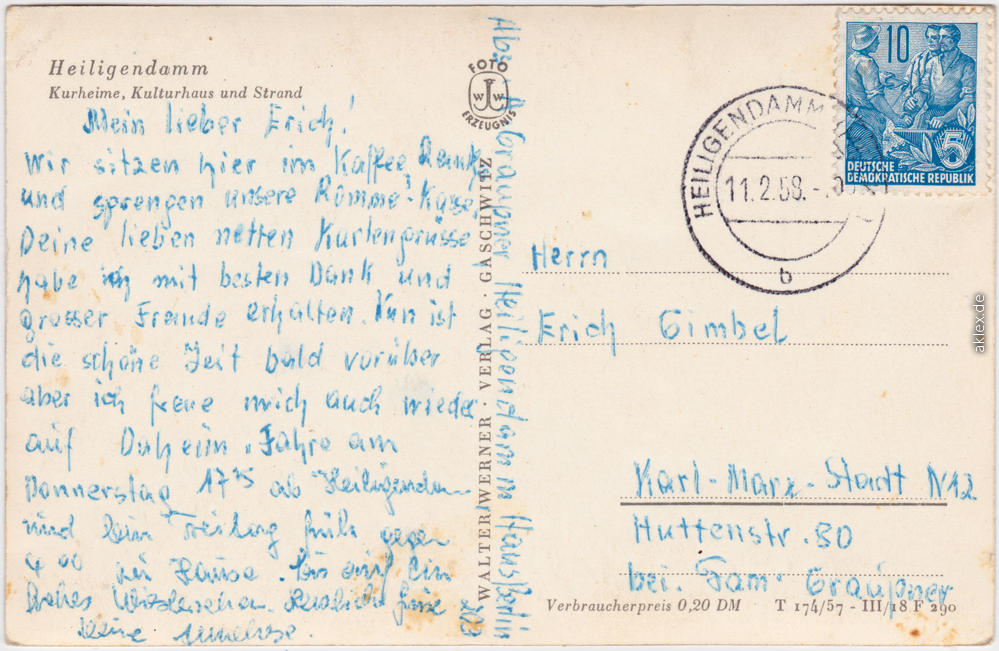 Heiligendamm
Kurheime, Kulturhaus und Strand
Mein lieber Erich!
Wir sitzen hier im Kaffee
und sprengen unsere Römme-Kasse.
Deine lieben netten Kartengrüsse
habe ich mit besten Dank und
grosser Freude erhalten. Nun ist
die schöne Zeit bald vorüber
aber ich freue mich auch wieder
auf Daheim. Fahre am
Donnerstag 17 45 ab Heiligendam
und bin Freitag früh gegen
4 00 zu Hause. Bis auf ein
frohes Wiedersehen. Herzliche Grüse
Deine Annelise.
Abs. A. Graupner Heiligendamm Haus Berlin
203
FOTO
W W
ERZEUGNIS
WALTER WERNER · VERLAG · GASCHWITZ
10
5
DEUTSCHE
DEMOKRATISCHE REPUBLIK
HEILIGENDAMM
11.2.58.
b
Herrn
Erich Gimbel
Karl-Marx-Stadt N12
Huttenstr. 80
bei. Fam. Graupner
Verbraucherpreis 0,20 DM T 174/57 - III/18 F 290
aklex.de